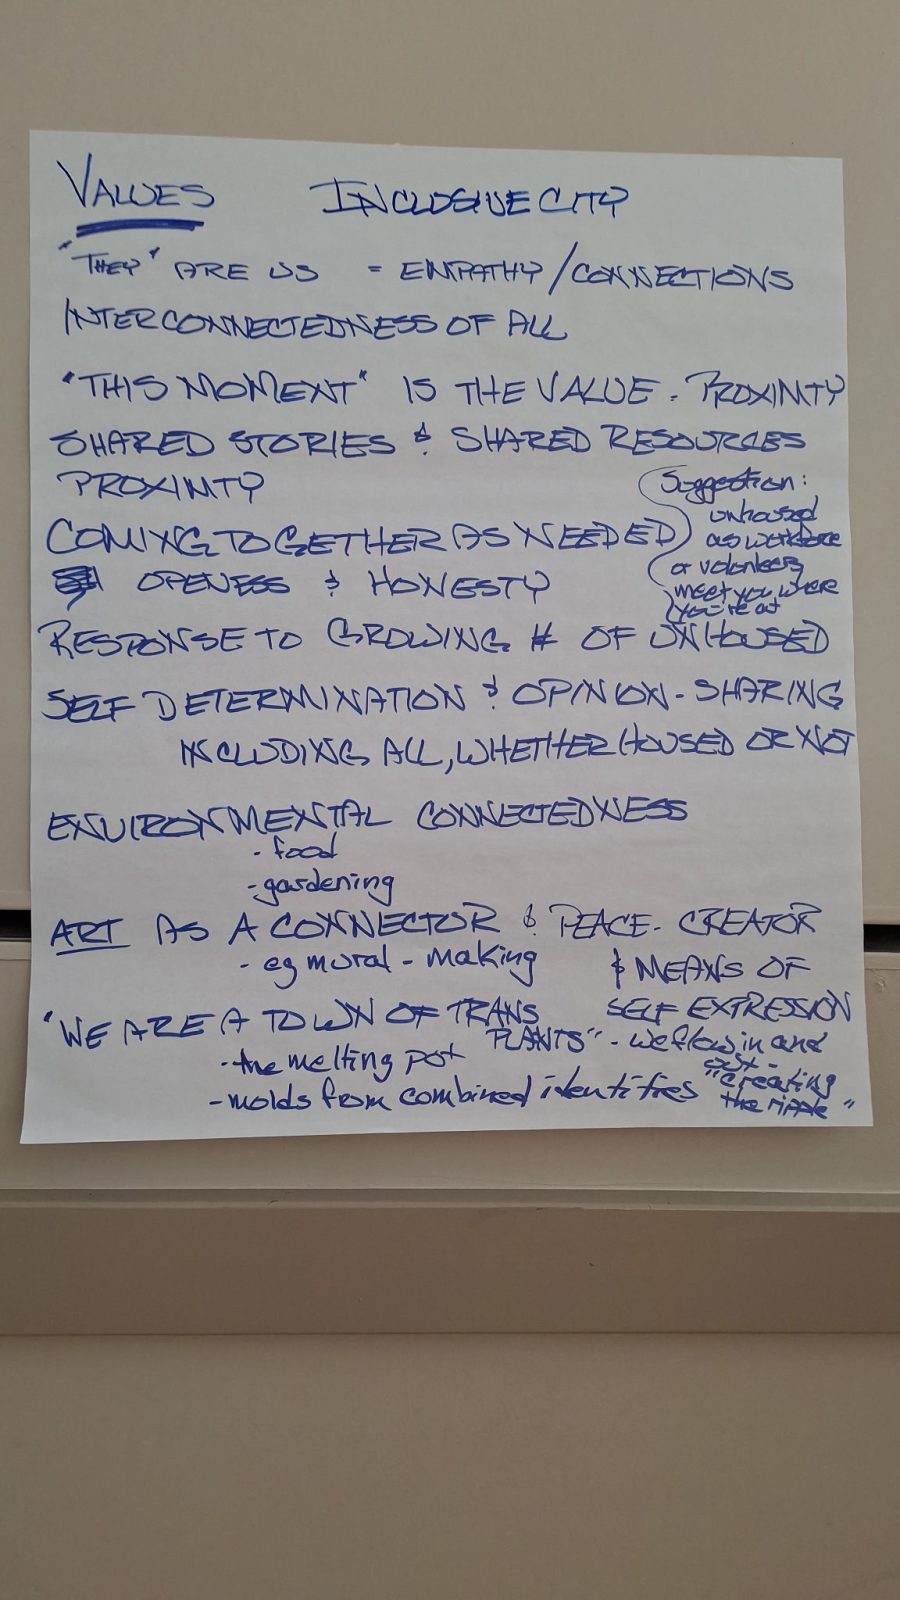 VALUES INCLUSIVE CITY
"THEY" ARE US = EMPATHY/CONNECTIONS
INTERCONNECTEDNESS OF ALL
"THIS MOMENT" IS THE VALUE - PROXIMTY
SHARED STORIES & SHARED RESOURCES
PROXIMTY
COMING TOGETHER AS NEEDED
OPENESS & HONESTY
Suggestion:
unhoused
as workforce
or volunteers
meet you where
you're at
RESPONSE TO GROWING # OF UNHOUSED
SELF DETERMINATION & OPINION-SHARING
INCLUDING ALL, WHETHER HOUSED OR NOT
ENVIRONMENTAL CONNECTEDNESS
- food
- gardening
ART AS A CONNECTOR & PEACE-CREATOR
- eg mural-making
& MEANS OF
SELF EXPRESSION
"WE ARE A TOWN OF TRANS
PLANTS" - we flow in and
out -
"creating
the ripple"
- the melting pot
- molds from combined identities